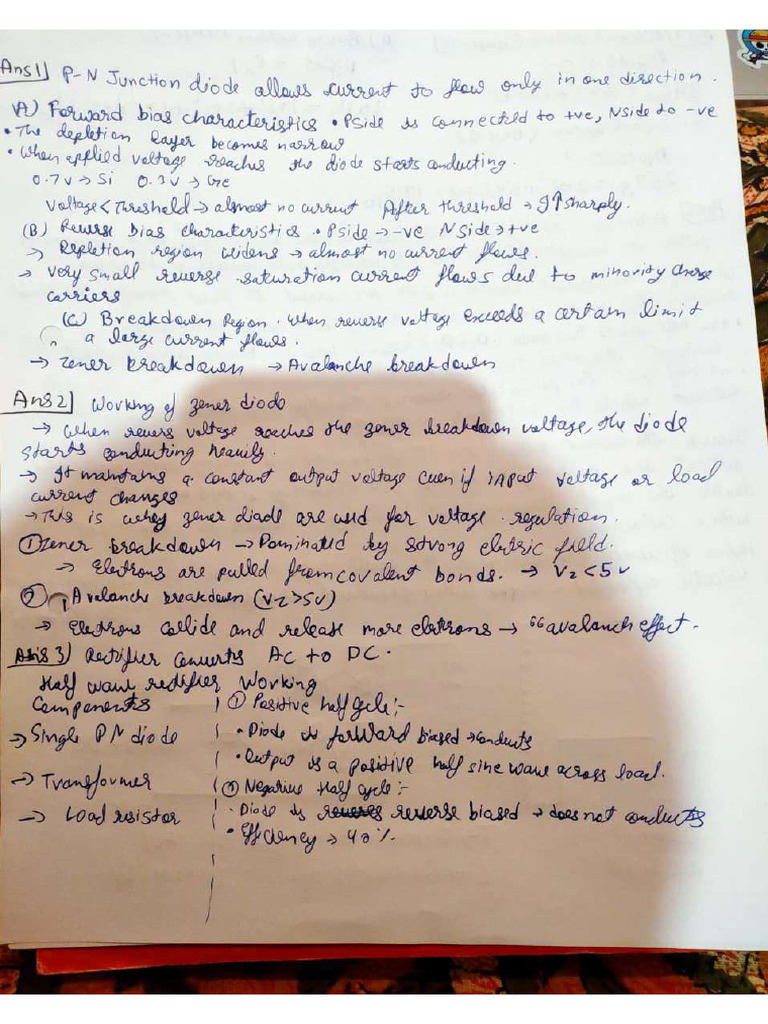 Ans 1] P-N Junction diode allows current to flow only in one direction.
(A) Forward bias characteristics • Pside is connected to +ve, Nside to -ve
• The depletion layer becomes narrow
• When applied voltage reaches the diode starts conducting.
0.7v → Si 0.3v → Ge
Voltage < Threshold → almost no current After threshold → I↑ sharply.
(B) Reverse bias characteristics • Pside → -ve Nside → +ve
→ Depletion region widens → almost no current flows.
→ Very small reverse saturation current flows due to minority charge
carriers
(C) Breakdown Region. When reverse voltage exceeds a certain limit
a large current flows.
→ Zener breakdown → Avalanche breakdown
Ans 2] Working of zener diode
→ When revers voltage reaches the zener breakdown voltage, the diode
starts conducting heavily.
→ It maintains a constant output voltage even if input voltage or load
current changes
→ This is why zener diode are used for voltage regulation.
① Zener breakdown → Dominated by strong eletric field.
→ Eletrons are pulled from covalent bonds. → Vz < 5v
② Avalanche breakdown (Vz > 5v)
→ Eletrons collide and release more eletrons → “avalanch effect.
Ans 3) Rectifier converts AC to DC.
Half wave rectifier Working
Components
→ Single PN diode
→ Transformer
→ Load resistor
① Positive half cycle:-
• Diode is forward biased → conducts
• Output is a positive half sine wave across load.
② Negative Half cycle:-
• Diode is reverse biased → does not conducts
• Efficiency → 40%